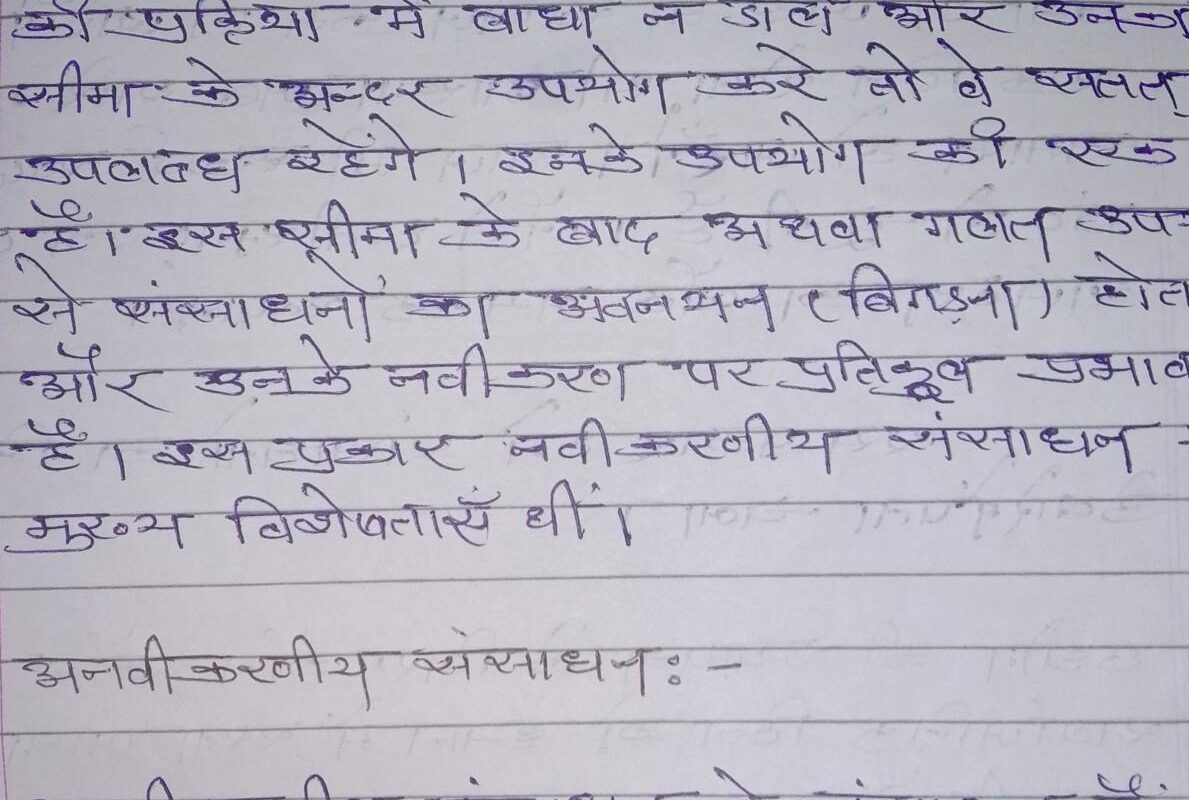 की प्रक्रिया में बाधा न डाले और उनका
सीमा के अन्दर उपभोग करे तो वे सतत्
उपलब्ध रहेंगे। इनके उपभोग की एक
है। इस सीमा के बाद अथवा गलत उप-
से संसाधनों का अवनयन (बिगड़ना) होत
और उनके नवीकरण पर प्रतिकूल प्रभाव
है। इस प्रकार नवीकरणीय संसाधन -
मुख्य विशेषताएँ थीं।
अनवीकरणीय संसाधन: -